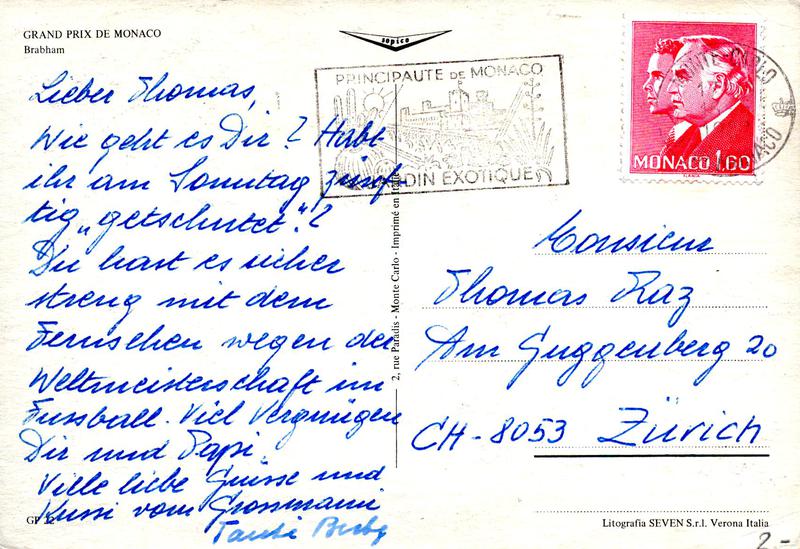 GRAND PRIX DE MONACO
Brabham
sopico
PRINCIPAUTE DE MONACO
JARDIN EXOTIQUE
MONTE-CARLO
MONACO
MONACO 1,60
Lieber Thomas,
Wie geht es Dir? Habt
ihr am Sonntag zünf
tig „getschutet“?
Du hast es sicher
streng mit dem
Fernsehen wegen der
Weltmeisterschaft im
Fussball. Viel Vergnügen
Dir und Papi.
Ville liebe Grüsse und
Kussi vom Grossmami
Tanti
2, rue Paradis - Monte Carlo - Imprimé en Italie
Monsieur
Thomas Raz
Am Guggenberg 20
CH-8053 Zürich
GP 22
Litografia SEVEN S.r.l. Verona Italia
2.-